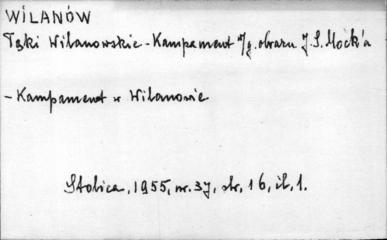 WILANÓW
Łąki Wilanowskie - Kampament wg. obrazu J. S. Mock'a
- Kampament w Wilanowie
Stolica, 1955, nr. 37, str. 16, il. 1.